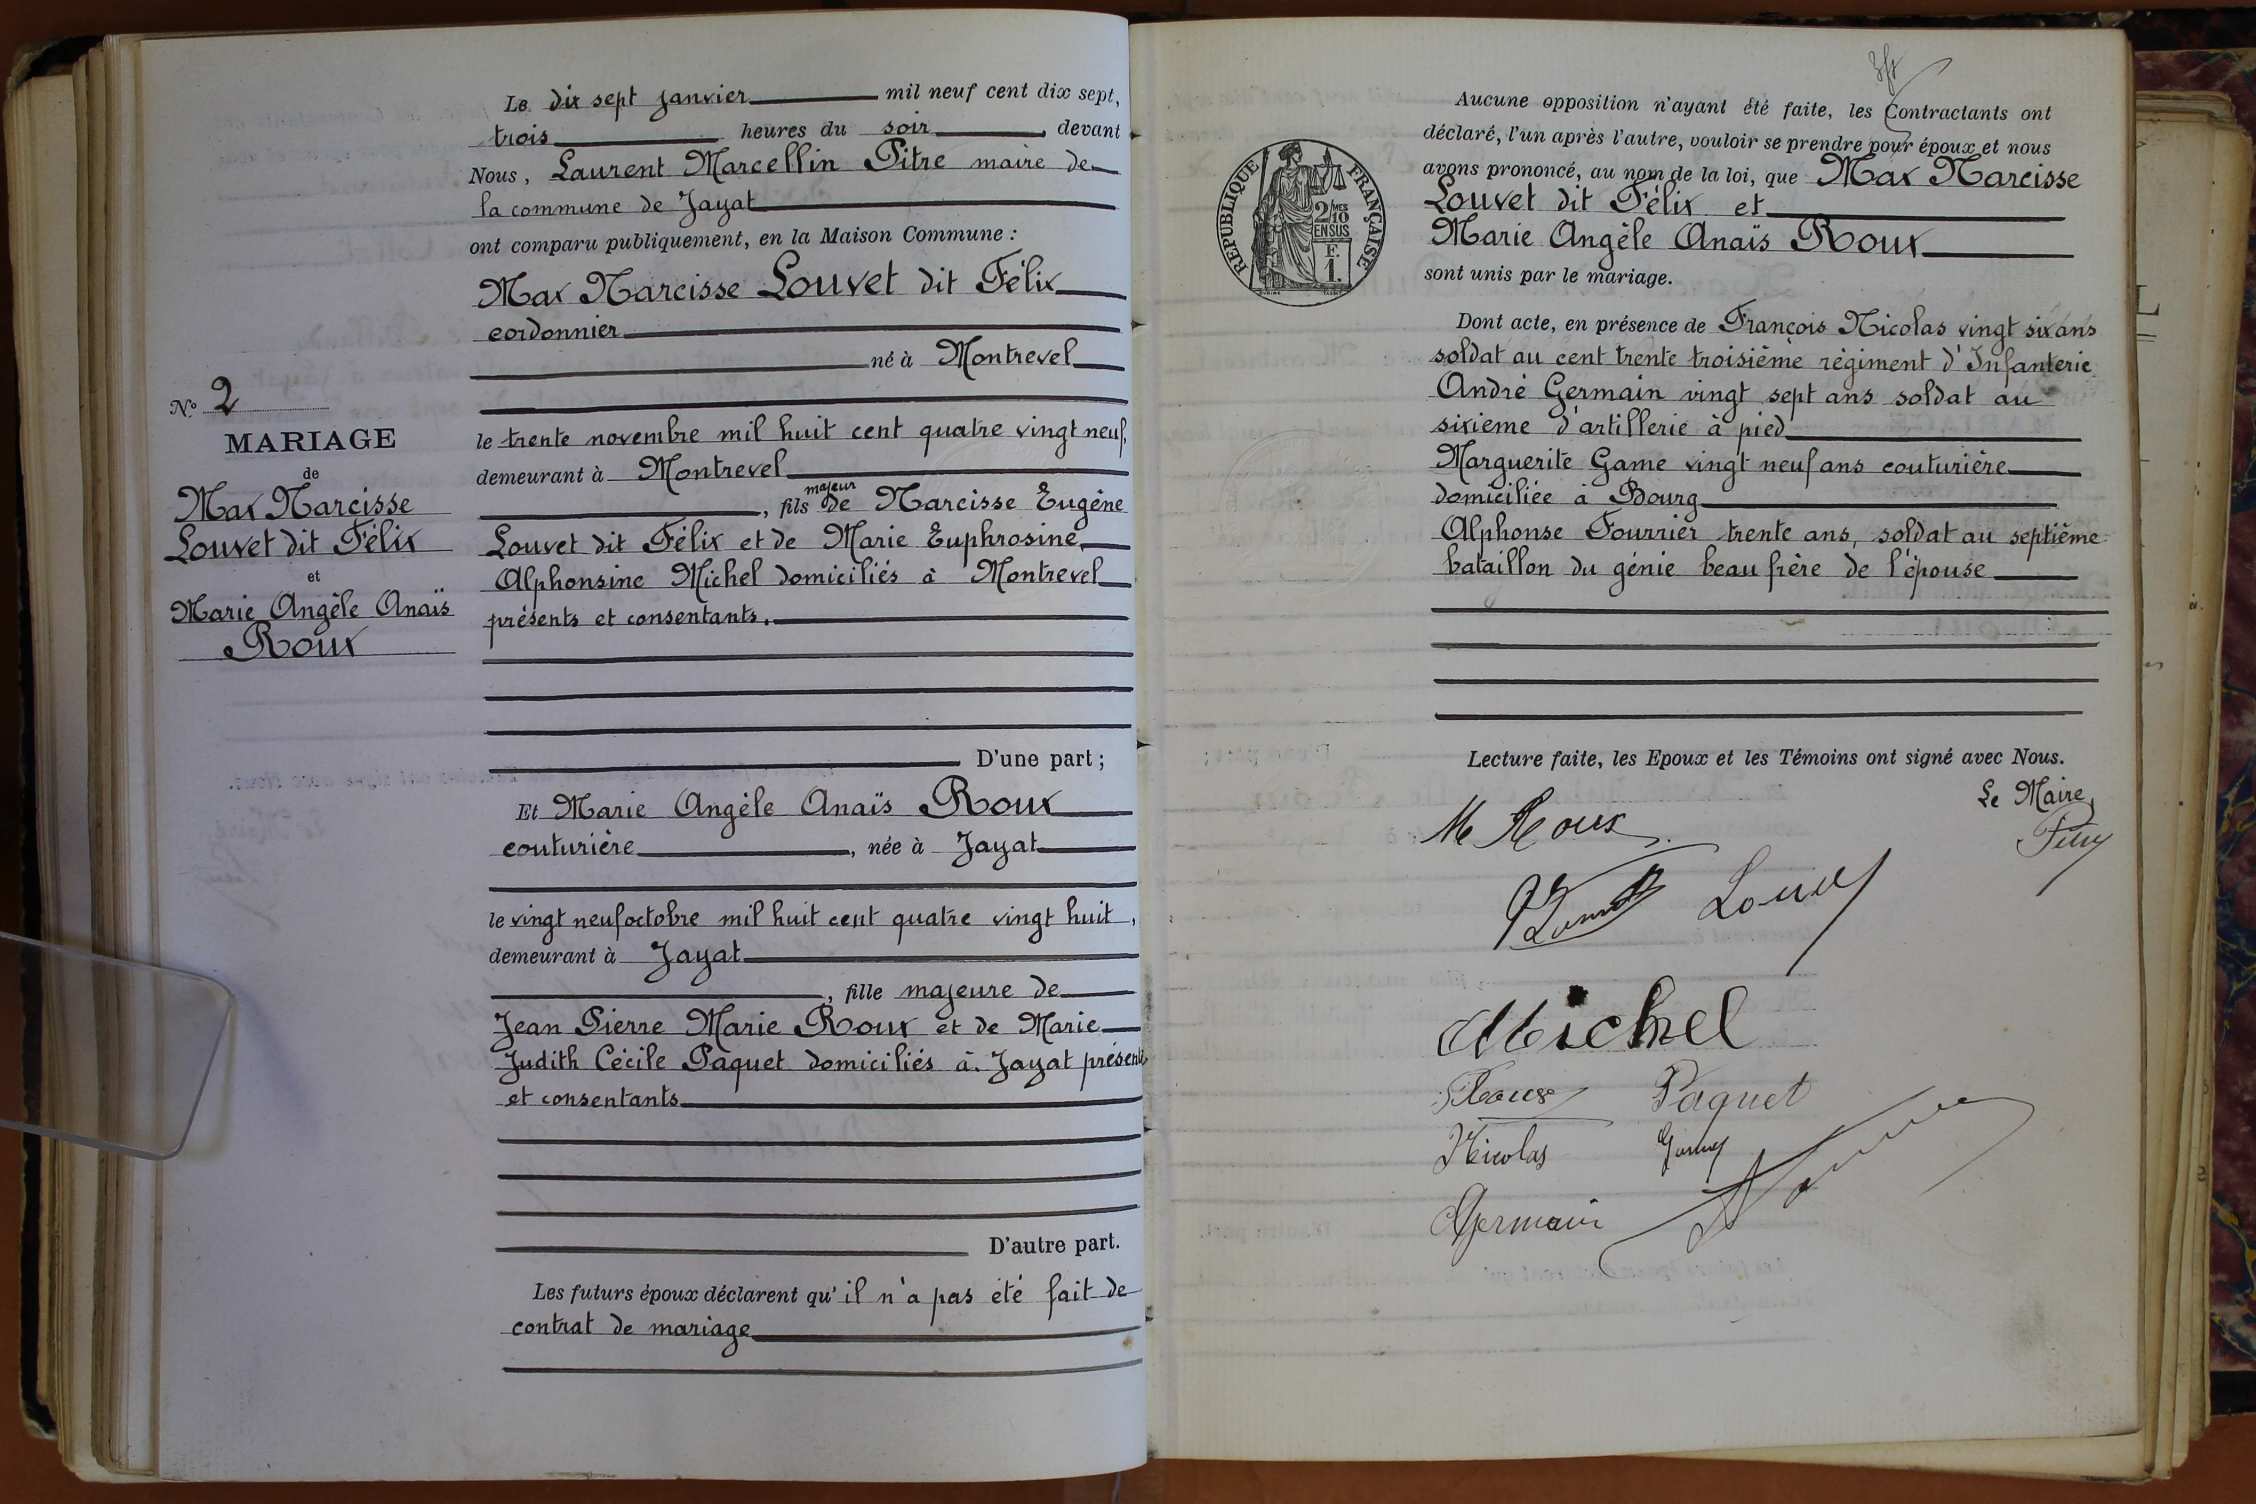 Le dix sept janvier mil neuf cent dix sept,
trois heures du soir, devant
Nous, Laurent Marcellin Pitre maire de
la commune de Jayat
ont comparu publiquement, en la Maison Commune :
Max Narcisse Louvet dit Félix
cordonnier
né à Montrevel
le trente novembre mil huit cent quatre vingt neuf,
demeurant à Montrevel
majeur
, fils de Narcisse Eugène
Louvet dit Félix et de Marie Euphrosine
Alphonsine Michel domiciliés à Montrevel
présents et consentants.
D'une part ;
Et Marie Angèle Anaïs Roux
couturière, née à Jayat
le vingt neuf octobre mil huit cent quatre vingt huit,
demeurant à Jayat
, fille majeure de
Jean Pierre Marie Roux et de Marie
Judith Cécile Paquet domiciliés à Jayat présents
et consentants
D'autre part.
Les futurs époux déclarent qu'il n'a pas été fait de
contrat de mariage
No 2
MARIAGE
de
Max Narcisse
Louvet dit Félix
et
Marie Angèle Anaïs
Roux
Aucune opposition n'ayant été faite, les Contractants ont
déclaré, l'un après l'autre, vouloir se prendre pour époux et nous
avons prononcé, au nom de la loi, que Max Narcisse
Louvet dit Félix et
Marie Angèle Anaïs Roux
sont unis par le mariage.
RÉPUBLIQUE FRANÇAISE
2/MES
10
EN SUS
F.
1.
Dont acte, en présence de François Nicolas vingt six ans
soldat au cent trente troisième régiment d'Infanterie
André Germain vingt sept ans soldat au
sixieme d'artillerie à pied
Marguerite Game vingt neuf ans couturière
domiciliée à Bourg
Alphonse Fourrier trente ans, soldat au septième
bataillon du génie beau frère de l'épouse
Lecture faite, les Epoux et les Témoins ont signé avec Nous.
Le Maire,
M Roux
Louvet
Michel
Roux Paquet
Nicolas Game
Germain